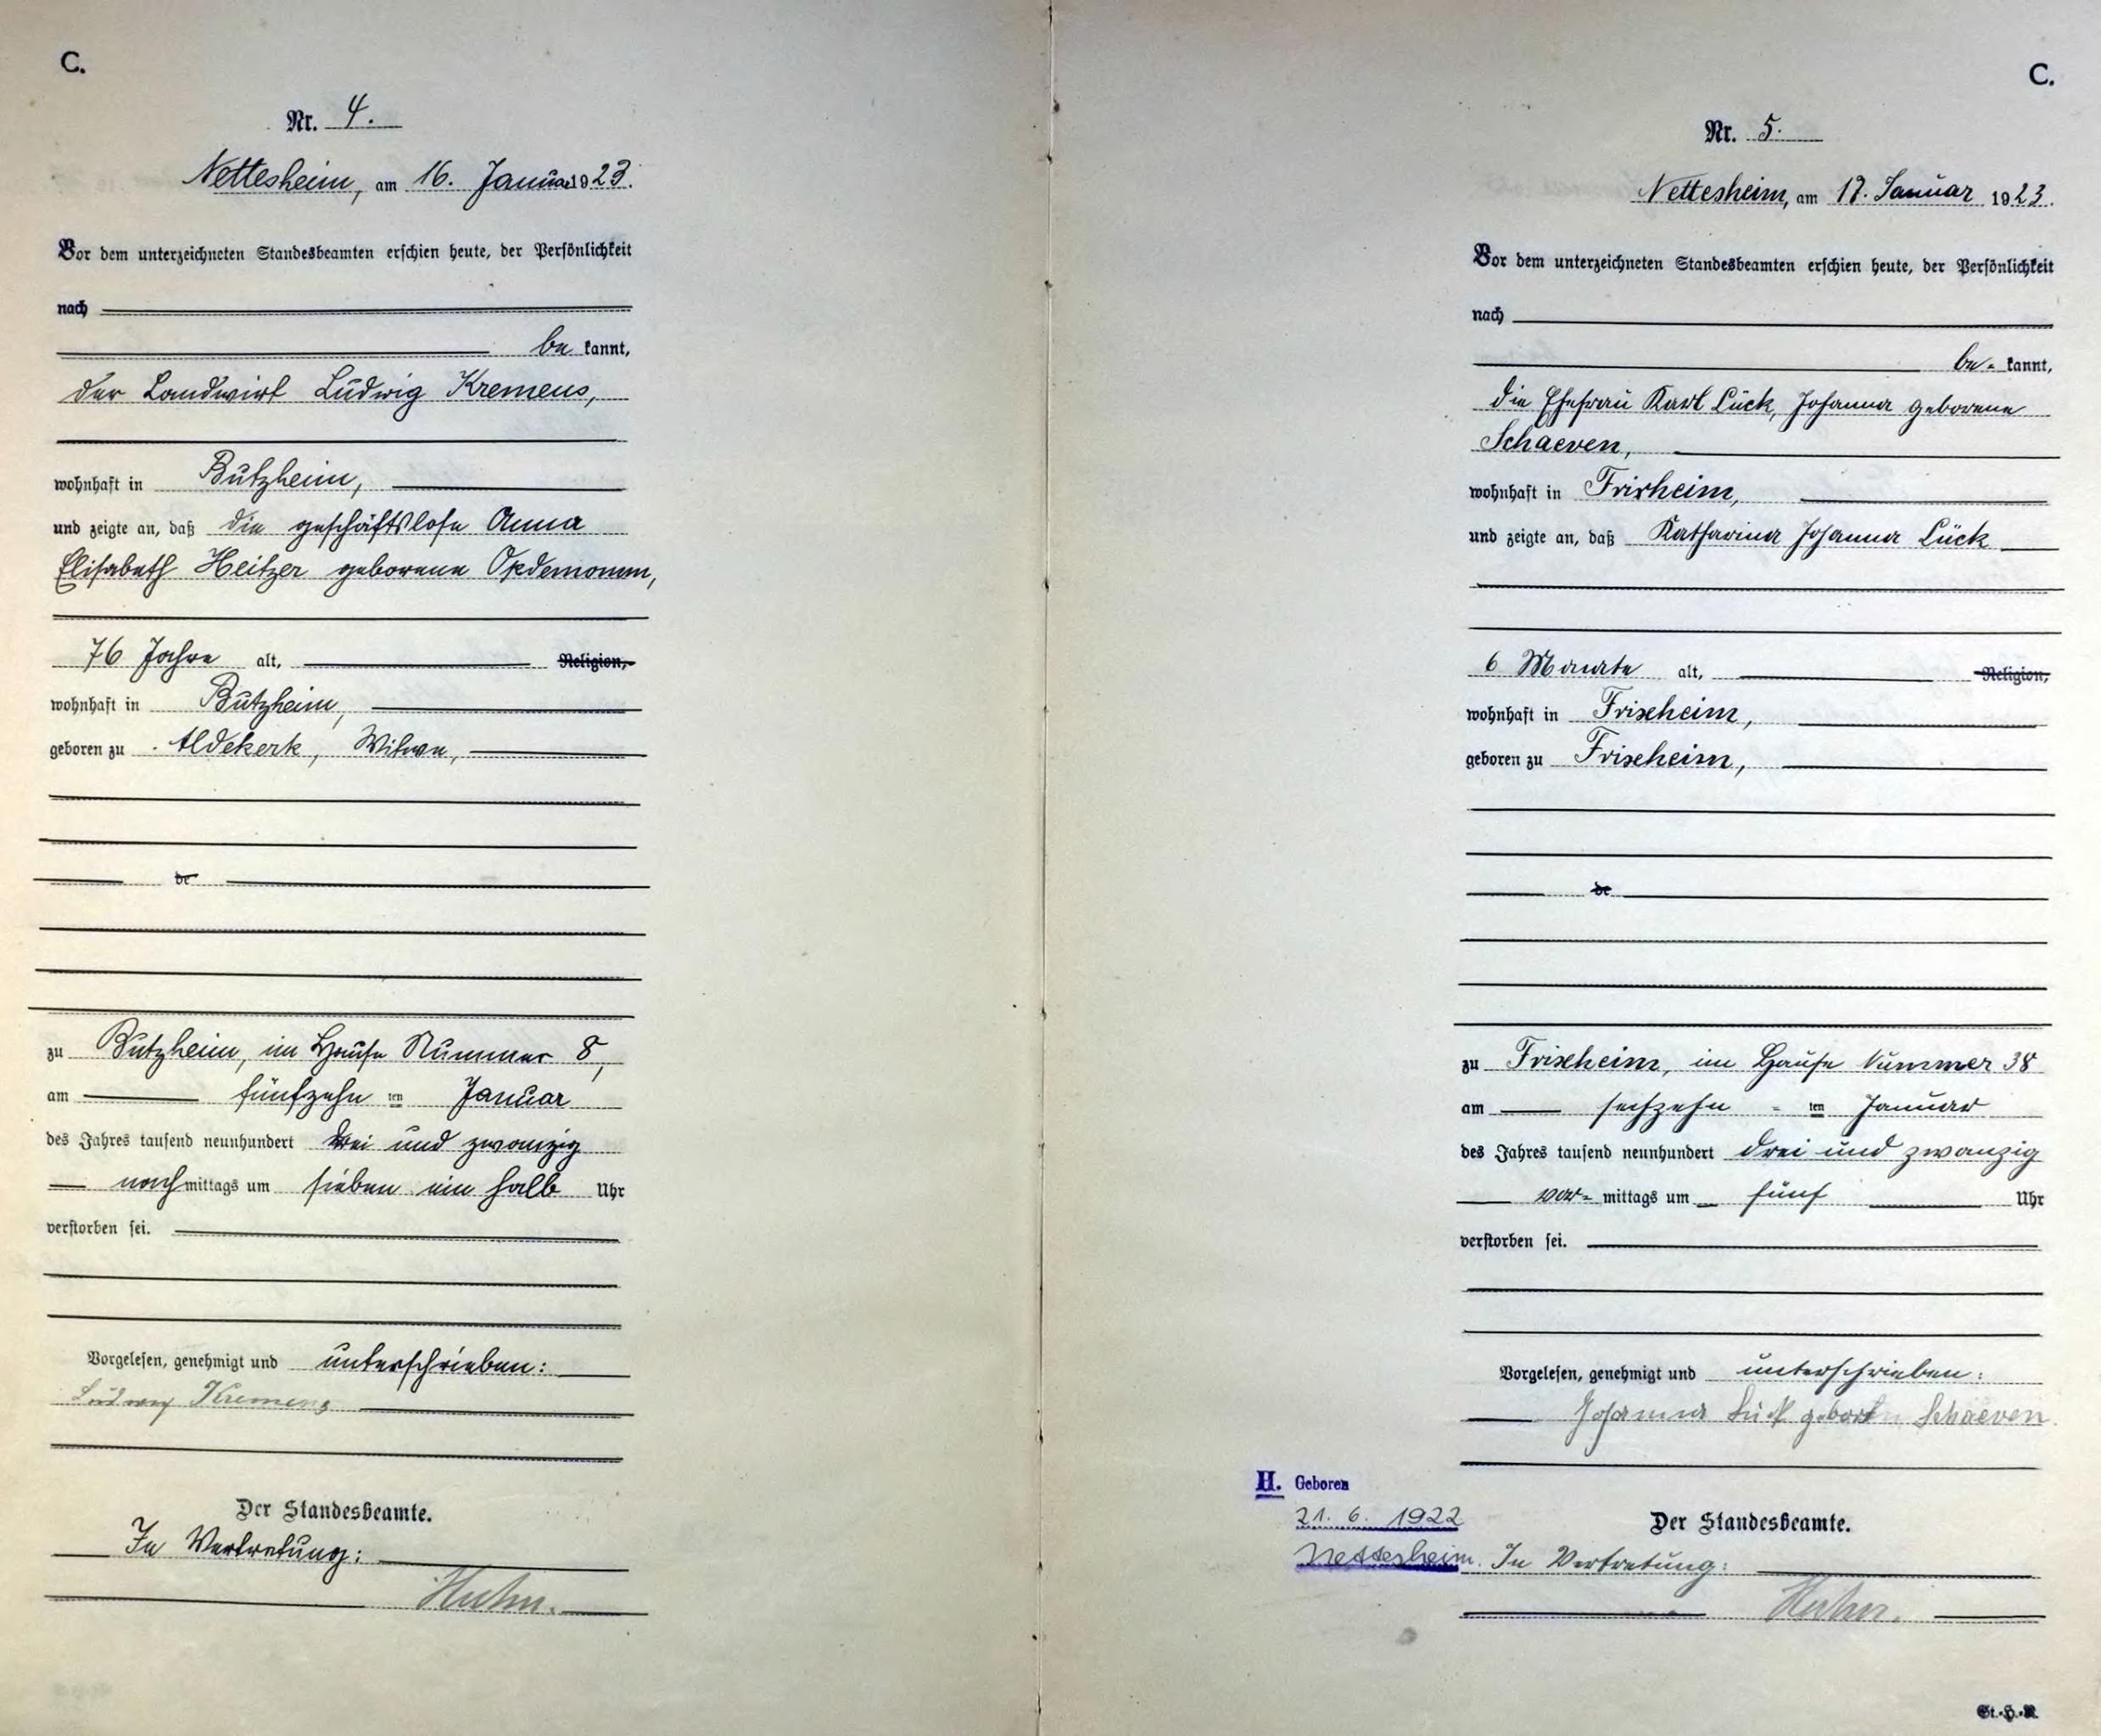 C.
Nr. 4.
Nettesheim, am 16. Januar 1923.
Vor dem unterzeichneten Standesbeamten erschien heute, der Persönlichkeit
nach
be kannt,
der Landwirt Ludwig Kremens,
wohnhaft in Butzheim,
und zeigte an, daß die geschäftslose Anna
Elisabeth Heitzer geborene Opdemomm,
76 Jahre alt, Religion,
wohnhaft in Butzheim,
geboren zu Aldekerk, Witwe,
de
zu Butzheim, im Hause Nummer 8,
am fünfzehn ten Januar
des Jahres tausend neunhundert drei und zwanzig
nachmittags um sieben ein halb Uhr
verstorben sei.
Vorgelesen, genehmigt und unterschrieben:
Ludwig Kremens
Der Standesbeamte.
In Vertretung:
C.
Nr. 5.
Nettesheim, am 17. Januar 1923.
Vor dem unterzeichneten Standesbeamten erschien heute, der Persönlichkeit
nach
be- kannt,
die Ehefrau Karl Lück, Johanna geborene
Schaeven,
wohnhaft in Frixheim,
und zeigte an, daß Katharina Johanna Lück
6 Monate alt, Religion,
wohnhaft in Frixheim,
geboren zu Frixheim,
de
zu Frixheim, im Hause Nummer 38
am sechzehn - ten Januar
des Jahres tausend neunhundert drei und zwanzig
vor- mittags um fünf Uhr
verstorben sei.
Vorgelesen, genehmigt und unterschrieben:
Johanna Lück geboren Schaeven
H. Geboren
21. 6. 1922
Nettesheim.
Der Standesbeamte.
In Vertretung:
St.-H.-R.